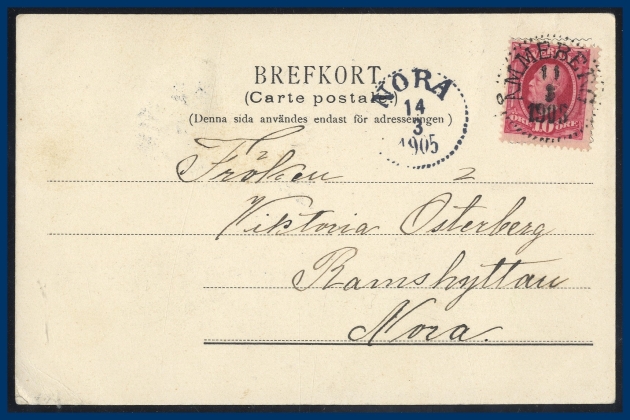 BREFKORT.
(Carte postale.)
(Denna sida användes endast för adresseringen)
NORA
14
3
1905
ÅMMEBERG
11
3
1905
10 ÖRE
Fröken
Viktoria Österberg
Ramshyttan
Nora.